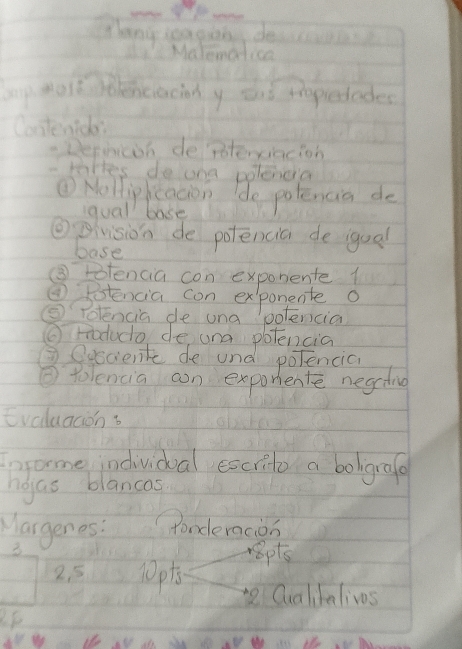 Planificación de
Matematica
potenciación y sus propiedades
Contenido:
- Definición de Potenciación
- Partes de una potencia
① Multiplicación de potencia de
igual base
② División de potencia de igual
base
③ Potencia con exponente 1
④ Potencia con exponente 0
⑤ Potencia de una potencia
⑥ Producto de una potencia
⑦ Cociente de una potencia
⑧ Potencia con exponente negativo
Evaluación:
Informe individual escrito a boligrafo
hojas blancas
Margenes: Ponderación
3 8pts
2,5 10pts
2 Cualitativos